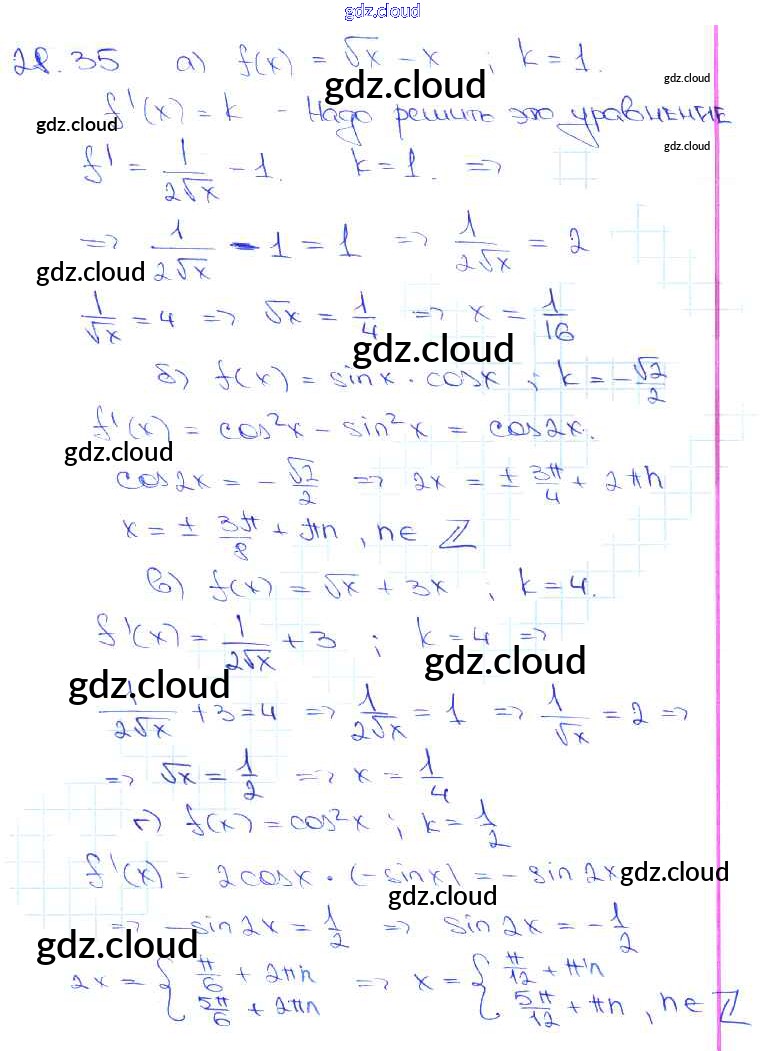 gdz.cloud
28.35 а) f(x) = √x - x ; k = 1.
gdz.cloud
gdz.cloud
f'(x) = k - Надо решить это уравнение
gdz.cloud
gdz.cloud
f' = 1/(2√x) - 1. k = 1. =>
=> 1/(2√x) - 1 = 1 => 1/(2√x) = 2
gdz.cloud
1/√x = 4 => √x = 1/4 => x = 1/16
gdz.cloud
б) f(x) = sinx · cosx ; k = -√2/2
f'(x) = cos²x - sin²x = cos2x.
gdz.cloud
cos2x = -√2/2 => 2x = ± 3π/4 + 2πn
x = ± 3π/8 + πn , n∈ ℤ
в) f(x) = √x + 3x ; k = 4.
f'(x) = 1/(2√x) + 3 ; k = 4 =>
gdz.cloud
gdz.cloud
1/(2√x) + 3 = 4 => 1/(2√x) = 1 => 1/√x = 2 =>
=> √x = 1/2 => x = 1/4
г) f(x) = cos²x ; k = 1/2
f'(x) = 2cosx · (-sinx) = - sin2x
gdz.cloud
gdz.cloud
=> -sin2x = 1/2 => sin2x = -1/2
gdz.cloud
2x = { π/6 + 2πn => x = { π/12 + πn
5π/6 + 2πn 5π/12 + πn , n∈ ℤ